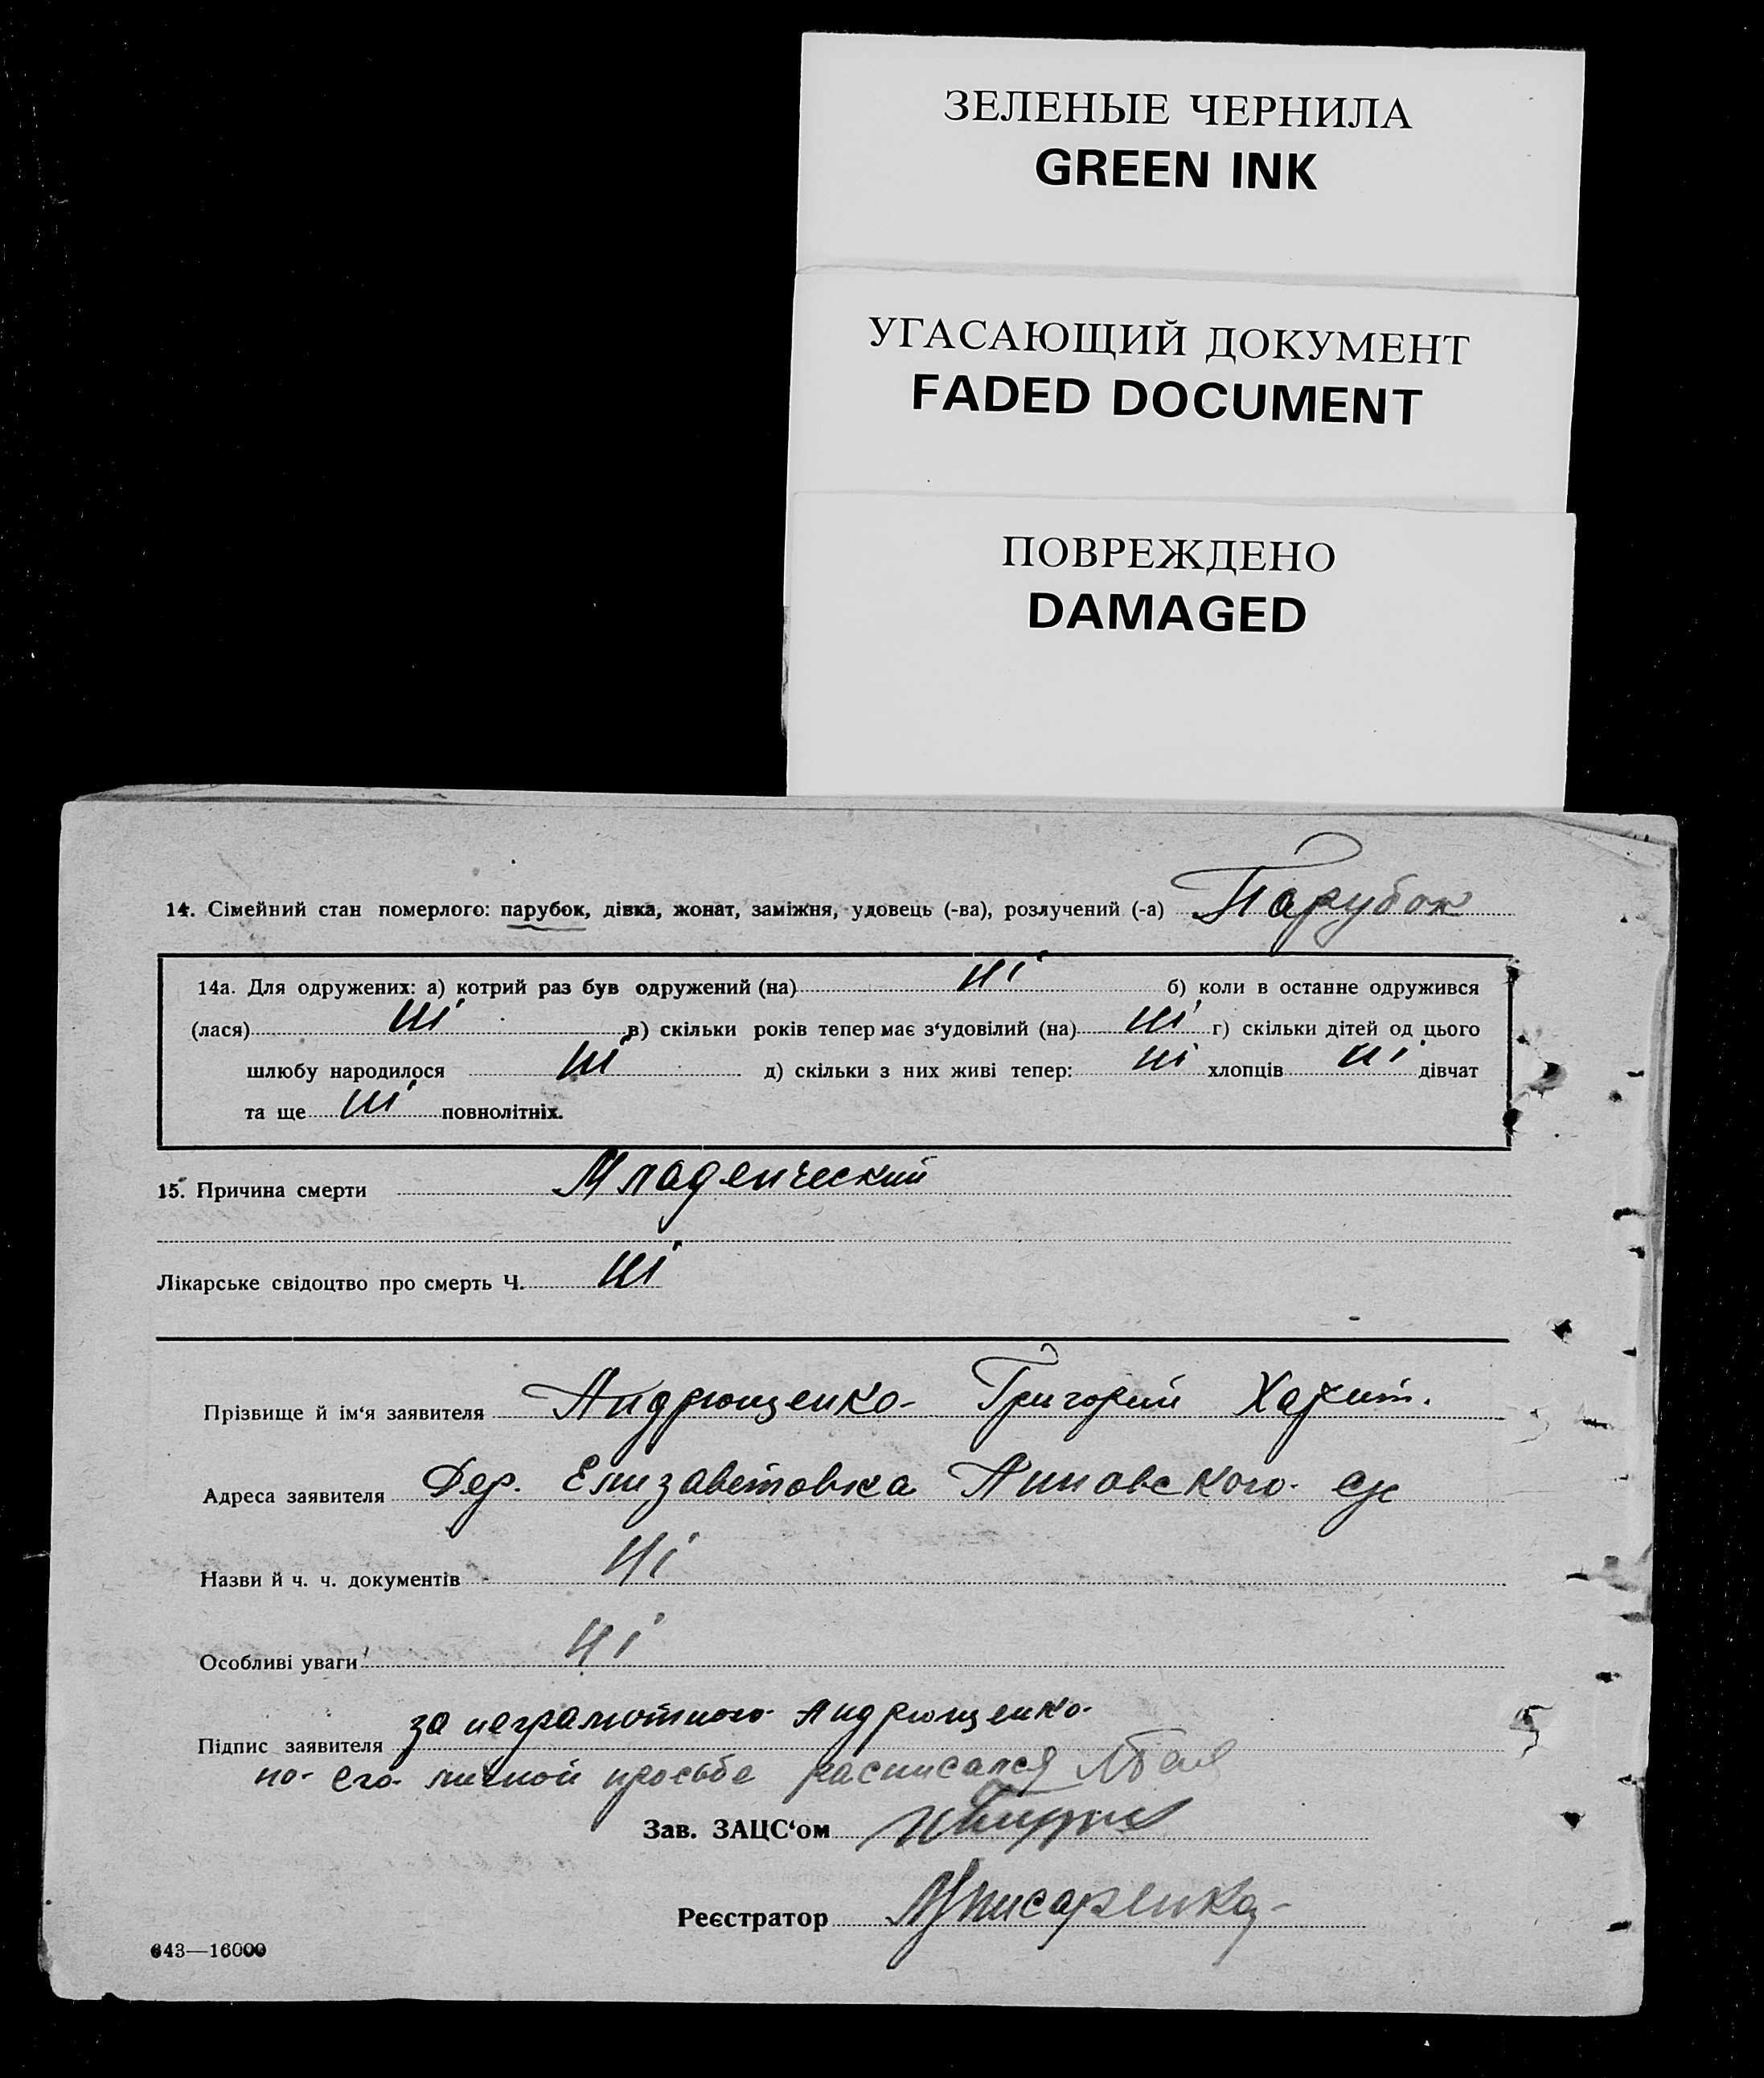 ЗЕЛЕНЫЕ ЧЕРНИЛА
GREEN INK
УГАСАЮЩИЙ ДОКУМЕНТ
FADED DOCUMENT
ПОВРЕЖДЕНО
DAMAGED
14. Сімейний стан померлого: парубок, дівка, жонат, заміжня, удовець (-ва), розлучений (-а) Парубок
14а. Для одружених: а) котрий раз був одружений (на) ні б) коли в останне одружився
(лася) ні в) скільки років тепер має з‘удовілий (на) ні г) скільки дітей од цього
шлюбу народилося ні д) скільки з них живі тепер: ні хлопців ні дівчат
та ще ні повнолітніх.
15. Причина смерти Младенческий
Лікарське свідоцтво про смерть Ч. ні
Прізвище й ім‘я заявителя Андрющенко Григорий Харит.
Адреса заявителя Дер. Елизаветовка Анновского с/с
Назви й ч. ч. документів ні
Особливі уваги ні
Підпис заявителя за неграмотного Андрющенко
по его личной просьбе расписался
Зав. ЗАЦС‘ом
Реєстратор Писаренко
643—16000